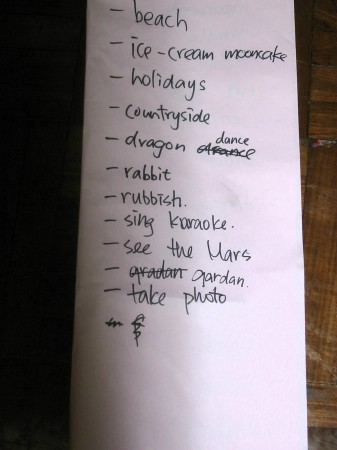 - beach
- ice-cream mooncake
- holidays
- countryside
- dragon dance
- rabbit
- rubbish.
- sing karaoke.
- see the Mars
- gardan.
- take photo